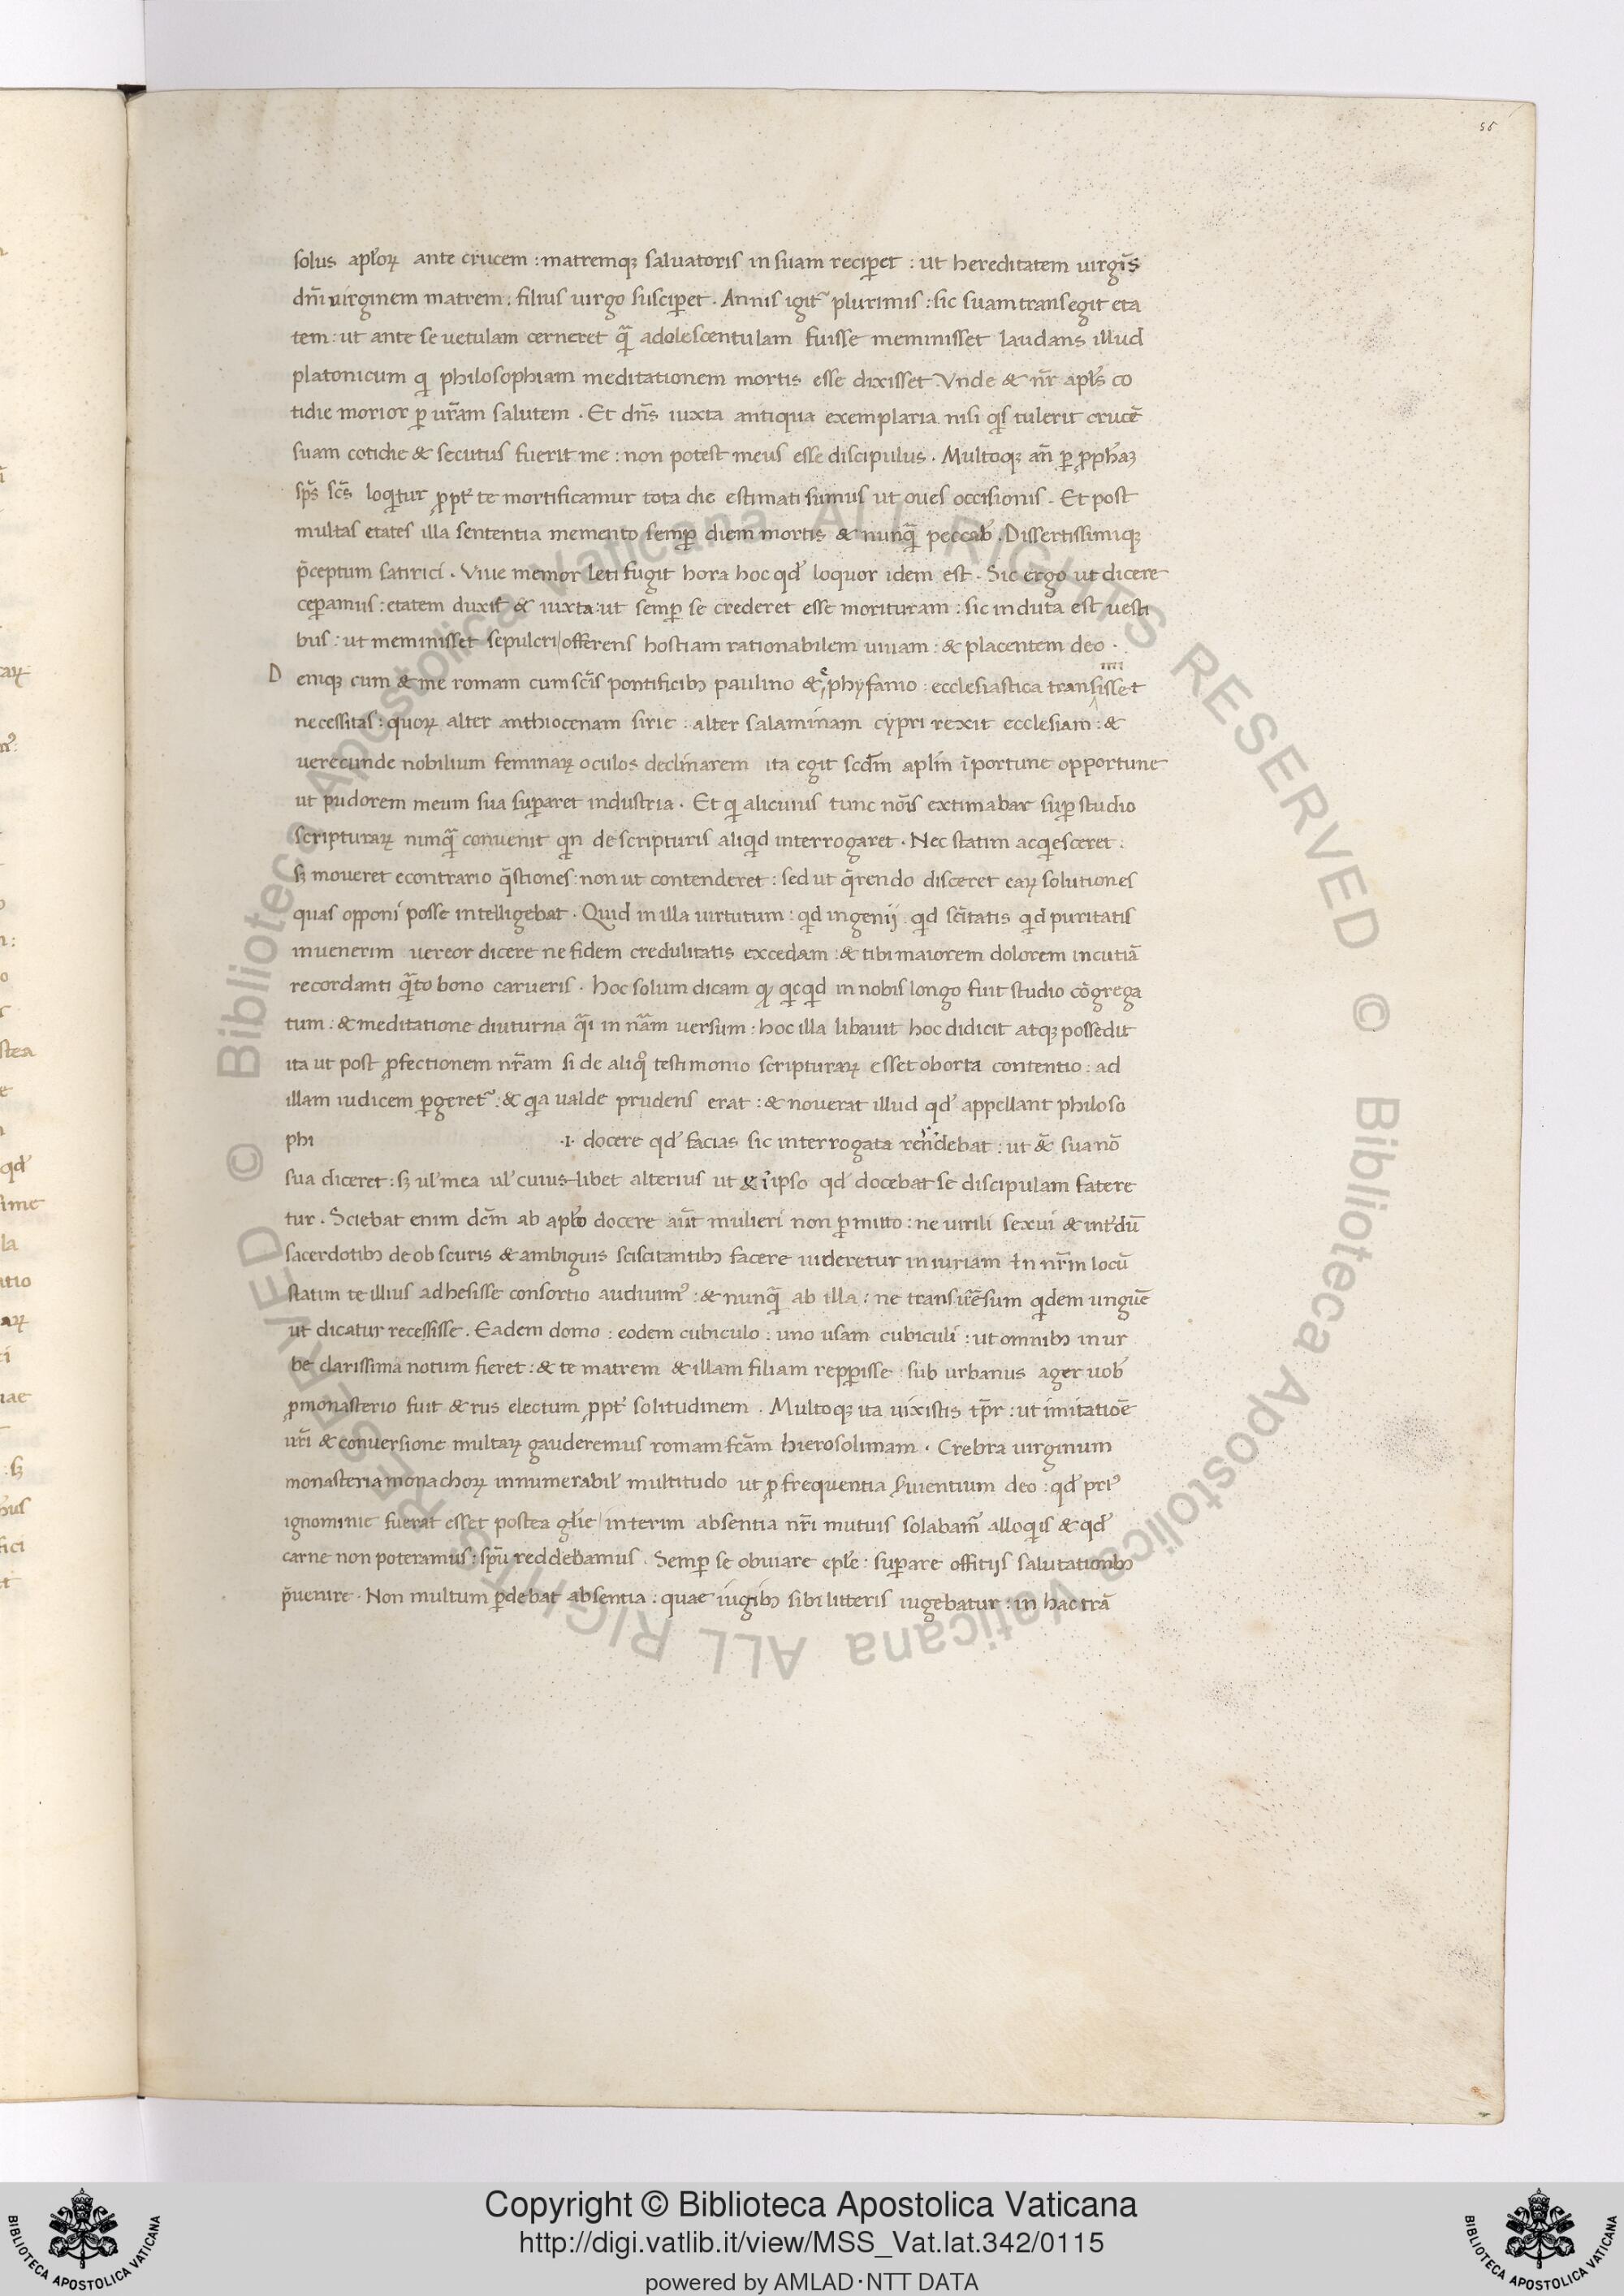 56
solus apl̃oꝝ ante crucem : matremqꝫ saluatoris in suam recip̱et : ut hereditatem uirgis̃
dñi uirginem matrem : filius uirgo suscip̱et . Annis igit᷑ plurimis : sic suam transegit eta
tem : ut ante se uetulam cerneret q̃ adolescentulam fuisse meminisset laudans illud
platonicum qi philosophiam meditationem mortis esse dixisset . Vnde & nr̃ apl̃s co
tidie morior p̱ ur̃am salutem . Et dñs iuxta antiqua exemplaria nisi qis tulerit crucẽ
suam cotidie & secutus fuerit me : non potest meus esse discipulus . Multoqꝫ añ p̱ ꝓph̃aꝫ
sp̃s sc̃s loqitur ꝓpt̃ te mortificamur tota die estimati sumus ut oues occisionis . Et post
multas etates illa sententia memento semp̱ diem mortis & nunq̃ peccab̃ . Dissertissimiqꝫ
p̃ceptum satirici . Viue memor leti fugit hora hoc qd̃ loquor idem est . Sic ergo ut dicere
cep̱amus : etatem duxit & iuxta : ut semp̱ se crederet esse morituram : sic induta est uesti
bus : ut meminisset sepulcri / offerens hostiam rationabilem uiuam : & placentem deo .
D eniqꝫ cum & me romam cum sc̃is pontificibꝫ paulino & ephyfanio : ecclesiastica transisset
necessitas : quoꝝ alter anthiocenam sirie : alter salaminam cypri rexit ecclesiam : &
uerecunde nobilium feminaꝝ oculos declinarem ita egit scd̃m aplm̃ ĩportune opportune
ut pudorem meum sua sup̱aret industria . Et qi alicuius tunc nõis extimabar sup̱ studio
scripturaꝝ nunq̃ conuenit qin de scripturis aliqid interrogaret . Nec statim acqiesceret :
sꝫ moueret econtrario q̃stiones : non ut contenderet : sed ut q̃rendo disceret eaꝝ solutiones
quas opponi posse intelligebat . Quid in illa uirtutum : qid ingenij qid sc̃itatis qid puritatis
inuenerim uereor dicere ne fidem credulitatis excedam : & tibi maiorem dolorem incutiã
recordanti q̃to bono carueris . hoc solum dicam qꝫ qicqid in nobis longo fuit studio cõgrega
tum : & meditatione diuturna q̃i in nãm uersum : hoc illa libauit hoc didicit atqꝫ possedit
ita ut post ꝓfectionem nr̃am si de aliqo testimonio scripturaꝝ esset oborta contentio : ad
illam iudicem p̱geret᷑ : & qia ualde prudens erat : & nouerat illud qd̃ appellant philoso
phi .i. docere qd̃ facias sic interrogata rendebat : ut & sua nõ
sua diceret : sꝫ ul̃ mea ul̃ cuius libet alterius ut & ĩ ipso qd̃ docebat se discipulam fatere
tur . Sciebat enim dc̃m ab apl̃o docere aũt mulieri non p̱mitto : ne uirili sexui & int̃dũ
sacerdotibꝫ de obscuris & ambiguis sciscitantibꝫ facere uideretur iniuriam In nr̃m locũ
statim te illius adhesisse consortio audiuim᷒ : & nunq̃ ab illa : ne transuẽsum qidem unguẽ
ut dicatur recessisse . Eadem domo : eodem cubiculo : uno usam cubiculi : ut omnibꝫ in ur
be clarissima notum fieret : & te matrem & illam filiam repp̱isse : sub urbanus ager uob̃
ꝓ monasterio fuit & rus electum ꝓpt̃ solitudinem . Multoqꝫ ita uixistis tp̃r : ut imitatiõe
ur̃i & conuersione multaꝝ gauderemus romam fcãm hierosolimam . Crebra uirginum
monasteria monachoꝝ innumerabil̃ multitudo ut ꝓ frequentia seruientium deo : qd̃ pri᷒
ignominie fuerat esset postea gl̃ie / interim absentia nr̃i mutuis solabam̃ alloqiis & qd̃
carne non poteramus : spũ reddebamus . Semp̱ se obuiare epl̃e : sup̱are offitijs salutationibꝫ
p̃uenire . Non multum p̱debat absentia : quae iugibꝫ sibi litteris iugebatur : in hac trã
Copyright © Biblioteca Apostolica Vaticana
http://digi.vatlib.it/view/MSS_Vat.lat.342/0115
powered by AMLAD·NTT DATA
BIBLIOTECA APOSTOLICA VATICANA
BIBLIOTECA APOSTOLICA VATICANA
© Biblioteca Apostolica Vaticana ALL RIGHTS RESERVED © Biblioteca Apostolica Vaticana ALL RIGHTS RESERVED